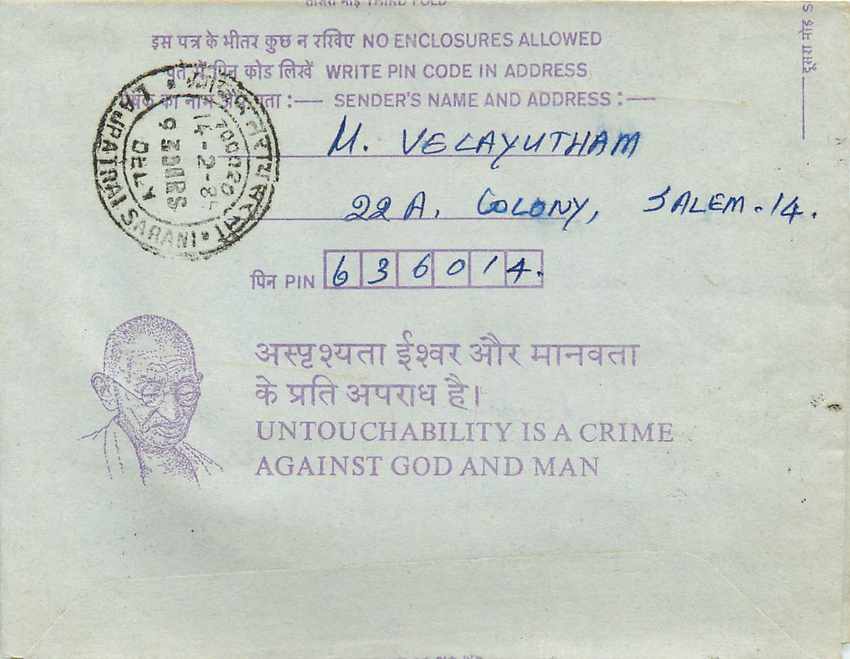 तीसरा मोड़ THIRD FOLD
इस पत्र के भीतर कुछ न रखिए NO ENCLOSURES ALLOWED
पते में पिन कोड लिखें WRITE PIN CODE IN ADDRESS
का नाम पता :— SENDER'S NAME AND ADDRESS :—
M. VELAYUTHAM
22 A, COLONY, SALEM-14.
पिन PIN 636014.
LAJPATRAI SARANI
700020
14-2-84
अस्पृश्यता ईश्वर और मानवता
के प्रति अपराध है।
UNTOUCHABILITY IS A CRIME
AGAINST GOD AND MAN
दूसरा मोड़ S